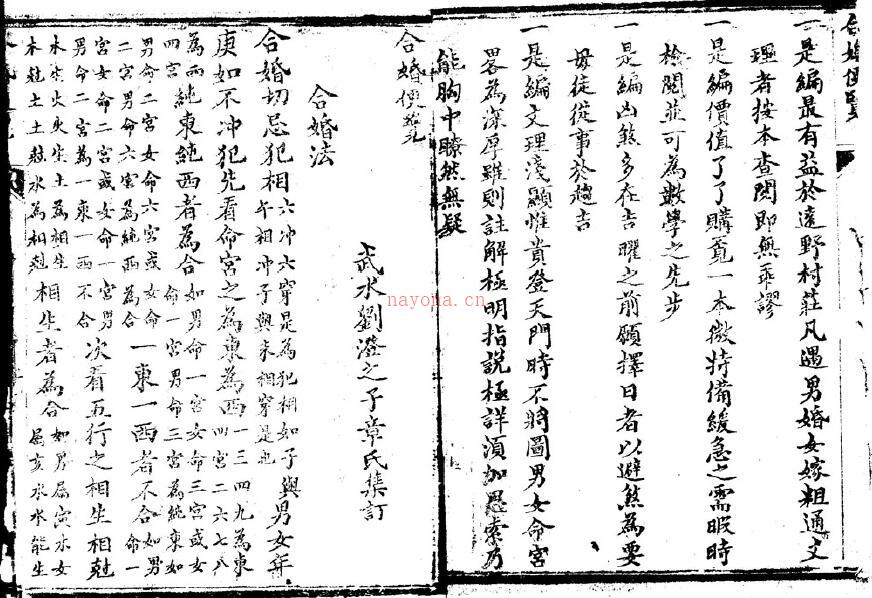 合婚便覽
一是編最有益於遠野村莊凡遇男婚女嫁粗通文
理者按本查閱即無乖謬
一是編價值了了購覓一本微特備緩急之需暇時
檢閱並可為數學之先步
一是編凶煞多在吉曜之前願擇日者以避煞為要
毋徒從事於趨吉
一是編文理淺顯惟貴登天門時不將圖男女命宮
畧為深厚雖則註解極明指說極詳須加思索乃
能胸中瞭然無疑
合婚便覽
武水劉澄之子章氏集訂
合婚法
合婚切忌犯相六冲六穿是為犯相如子與
午相冲子與未相穿是也
男女年
庚如不冲犯先看命宮之為東為西
一三四九為東
四宮二六七八
為西
四宮
純東純西者為合
如男命一宮女命三宮或女
命一宮男命三宮為純東如
男命二宮女命六宮或女命
二宮男命六宮為純西為合
一東一西者不合
如男
命一
宮女命二宮或女命一宮男
男命二宮為一東一西不合
次看五行之相生相尅
水生火火生土為相生
木尅土土尅水為相尅
相生者為合
如男屬寅木女
屬亥水水能生
nayona.cn